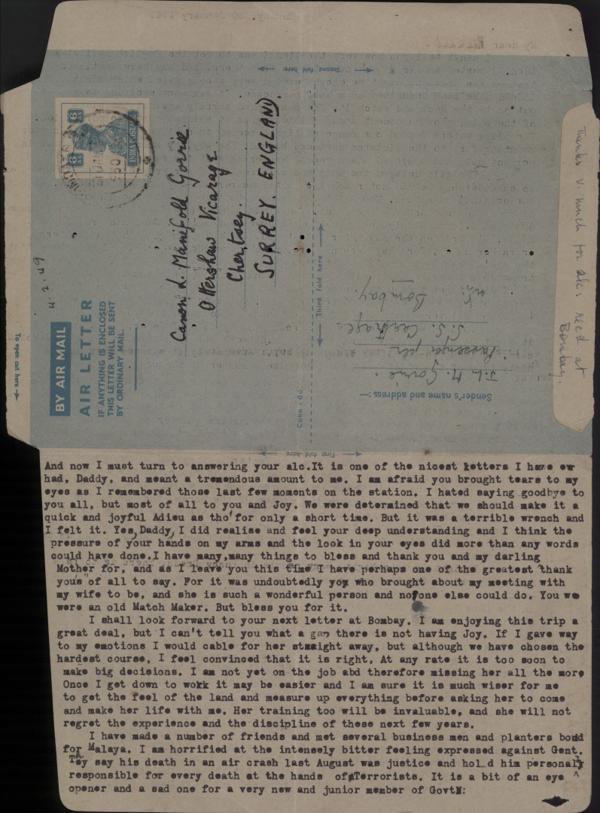 Second fold here
Thanks v. much for alc. Recd at
Bombay
6 AS
INDIA POSTAGE
6 AS
Canon L. Manifold Gorrie
Ottershaw Vicarage
Chertsey
SURREY ENGLAND
4.2.49
BY AIR MAIL
AIR LETTER
IF ANYTHING IS ENCLOSED
THIS LETTER WILL BE SENT
BY ORDINARY MAIL
To open cut here
Third fold here
Sender's name and address :-
J.L.M. Gorrie.
Passenger per
S.S. Carthage
Bombay.
First fold here
And now I must turn to answering your alc.It is one of the nicest letters I have ew
had, Daddy, and meant a tremendous amount to me. I am afraid you brought tears to my
eyes as I remembered those last few moments on the station. I hated saying goodbye to
you all, but most of all to you and Joy. We were determined that we should make it a
quick and joyful Adieu as tho'for only a short time. But it was a terrible wrench and
I felt it. Yes,Daddy, I did realise and feel your deep understanding and I think the
pressure of your hands on my arms and the look in your eyes did more than any words
could have done.I have many,many things to bless and thank you and my darling
Mother for, and as I leave you this time I have perhaps one of the greatest thank
yous of all to say. For it was undoubtedly you who brought about my meeting with
my wife to be, and she is such a wonderful person and no one else could do. You we
were an old Match Maker. But bless you for it.
I shall look forward to your next letter at Bombay. I am enjoying this trip a
great deal, but I can't tell you what a gap there is not having Joy. If I gave way
to my emotions I would cable for her straight away, but although we have chosen the
hardest course, I feel convinced that it is right. At any rate it is too soon to
make big decisions. I am not yet on the job abd therefore missing her all the more
Once I get down to work it may be easier and I am sure it is much wiser for me
to get the feel of the land and measure up everything before asking her to come
and make her life with me. Her training too will be invaluable, and she will not
regret the experience and the discipline of these next few years.
I have made a number of friends and met several business men and planters bond
for Malaya. I am horrified at the intensely bitter feeling expressed against Gent.
They say his death in an air crash last August was justice and hold him personaly
responsible for every death at the hands of Terrorists. It is a bit of an eye
opener and a sad one for a very new and junior member of GovtM: